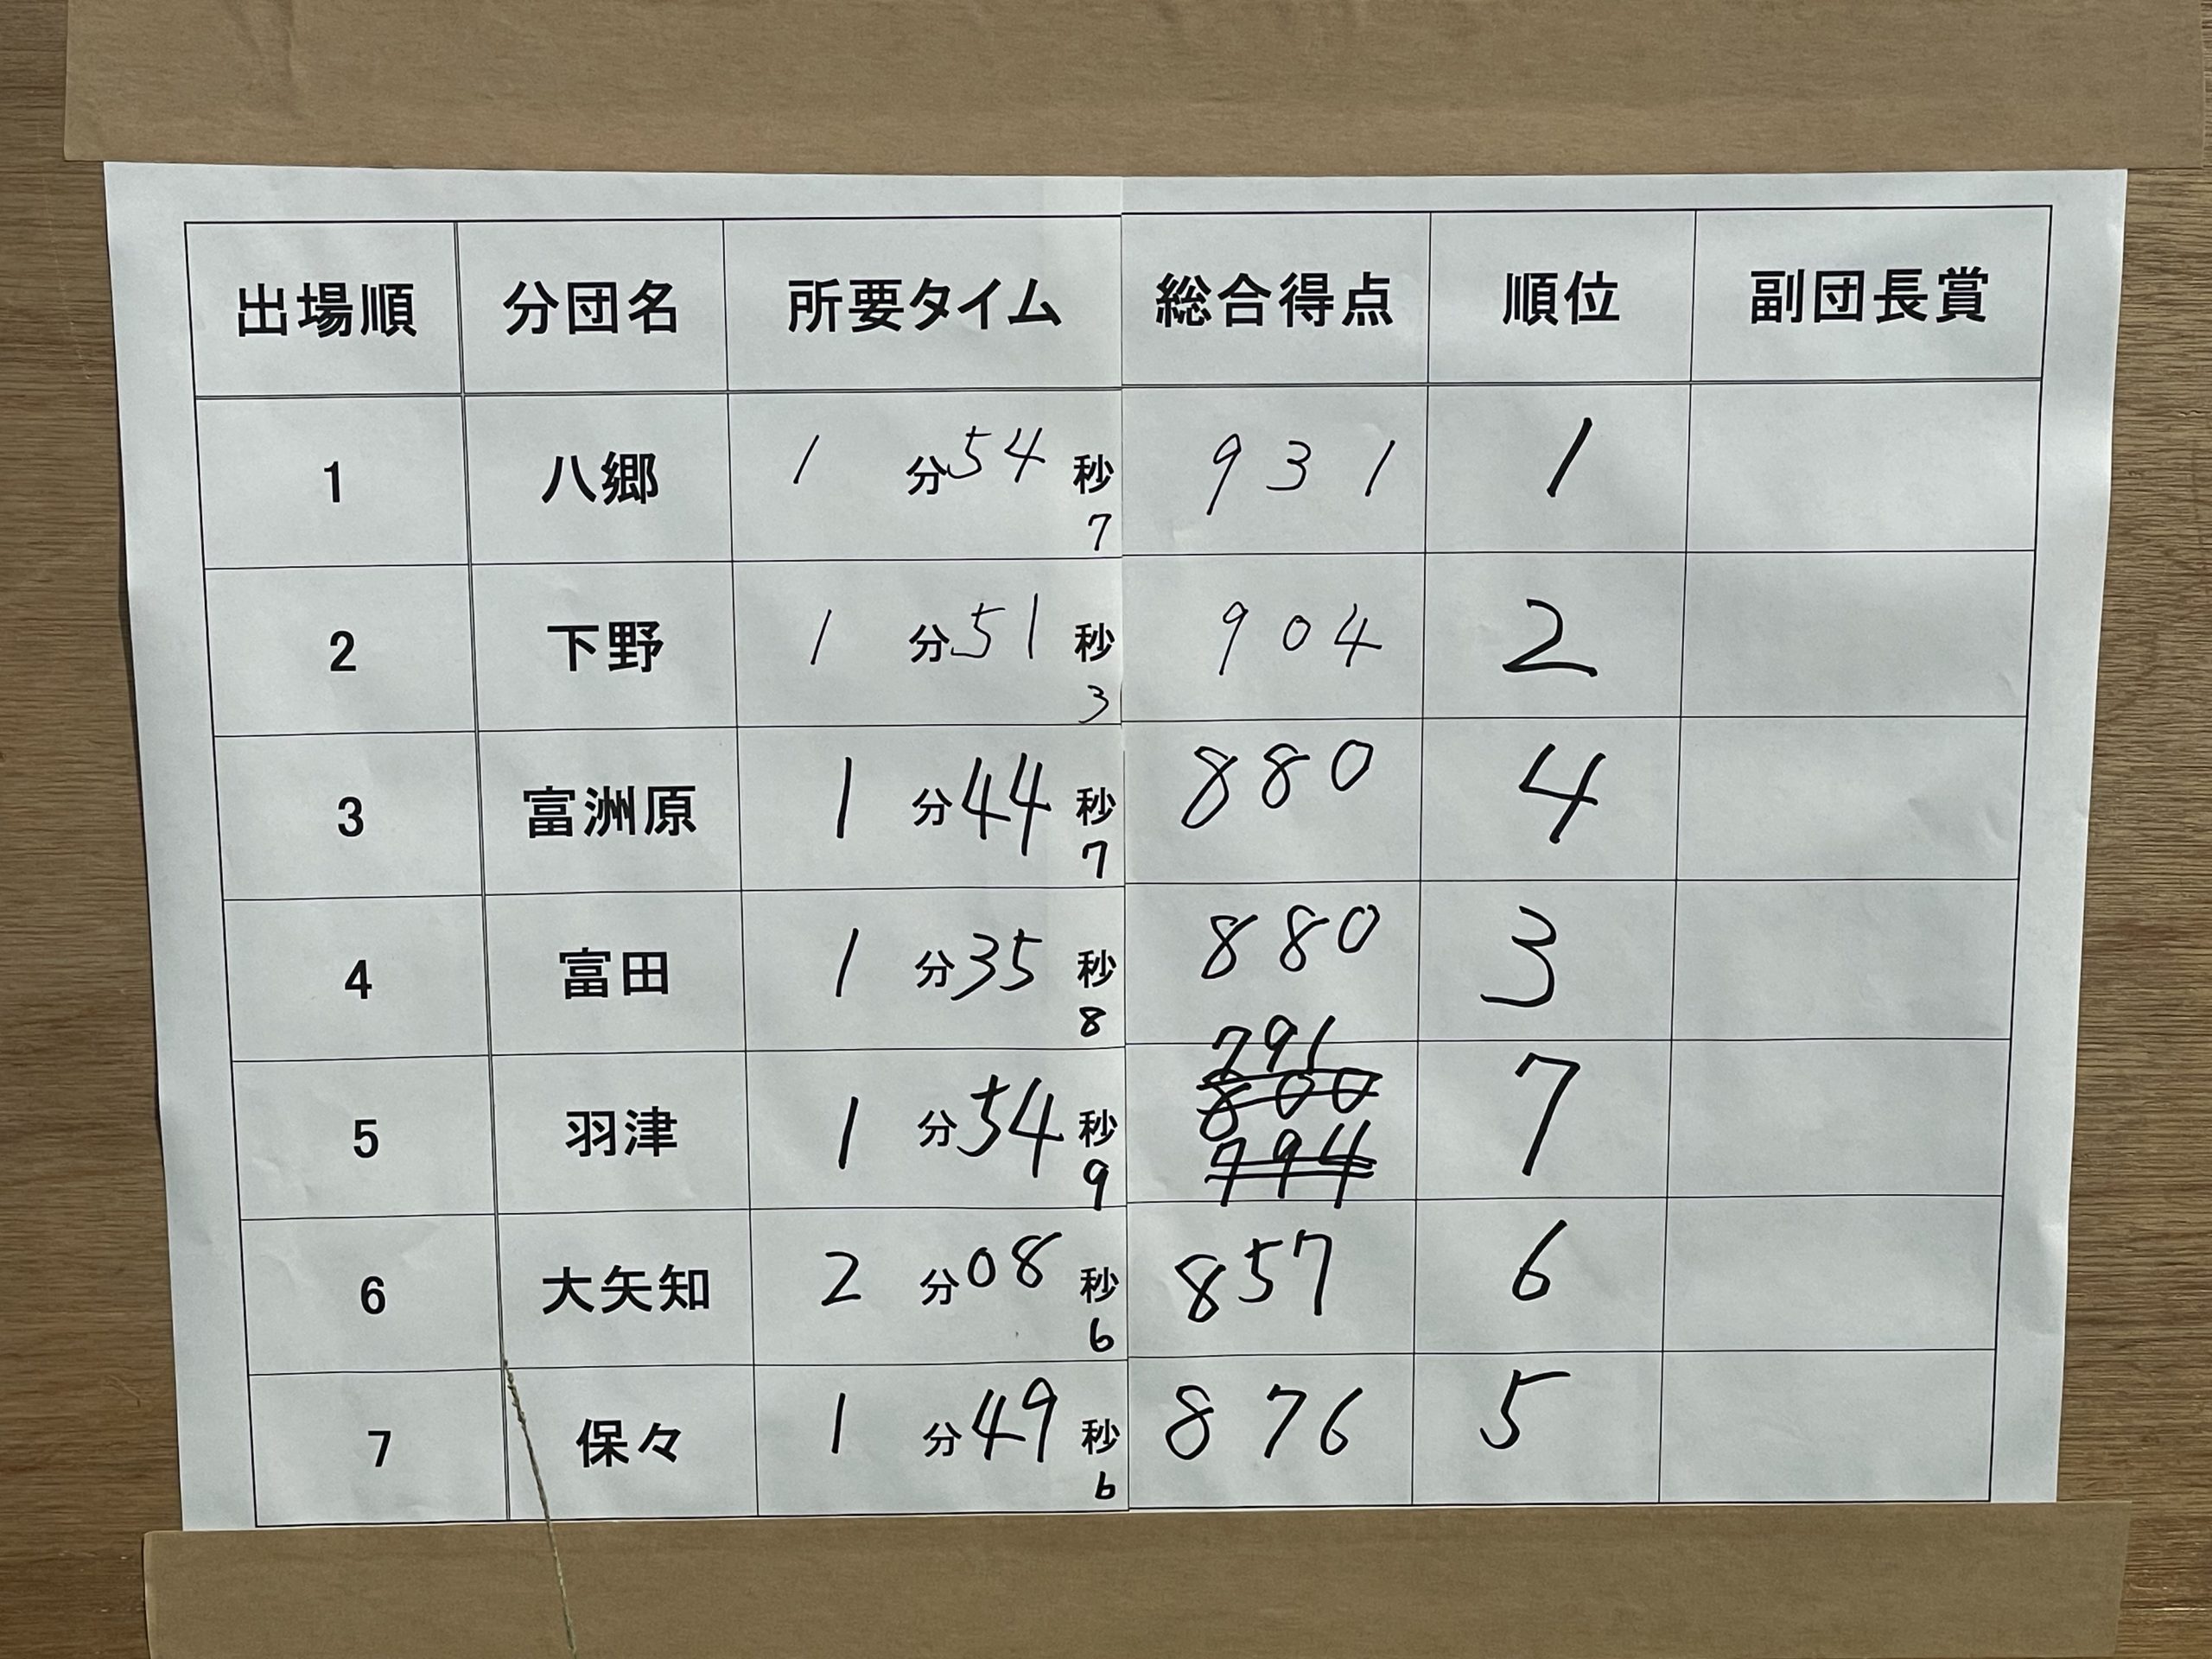 出場順 分団名 所要タイム 総合得点 順位 副団長賞
1 八郷 1分54秒7 931 1
2 下野 1分51秒3 904 2
3 富洲原 1分44秒7 880 4
4 富田 1分35秒8 880 3
5 羽津 1分54秒9 791 800 794 7
6 大矢知 2分08秒6 857 6
7 保々 1分49秒6 876 5